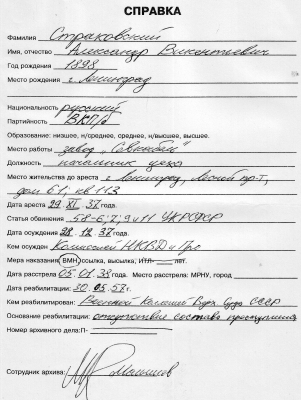 СПРАВКА
Фамилия Страковский
Имя, отчество Александр Викентьевич
Год рождения 1898
Место рождения г. Ленинград
Национальность русский
Партийность ВКП/б
Образование: низшее, н/среднее, среднее, н/высшее, высшее.
Место работы завод "Севкабель"
Должность начальник цеха
Место жительства до ареста г. Ленинград, Лесной пр-т,
дом 61, кв 113
Дата ареста 29 XI 37 года.
Статья обвинения 58-6,7,9 и 11 УК РСФСР
Дата осуждения 28.12.37 года.
Кем осужден Комиссией НКВД и Пр-
Мера наказания ВМН ссылка, высылка, ИТЛ — лет.
Дата расстрела 05.01.38 года. Место расстрела: МРНУ, город
Дата реабилитации: 30.05.57 г.
Кем реабилитирован: Военной Коллегией Верх Суда СССР
Основание реабилитации: отсутствие состава преступления
Номер архивного дела: П-
Сотрудник архива: